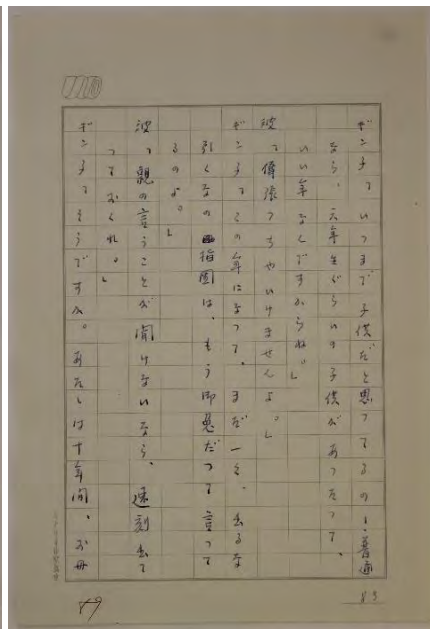 ギン子「いつまで子供だと思ってるの!普通
なら、六年生ぐらいの子供があったって、
いい年なんですからね。」
波「偉張っちゃいけませんよ。」
ギン子「この年になって、まだ一々、出るな
引くなの指図は、もう御免だって言って
るのよ。」
波「親の言うことが聞けないなら、速刻出て
っておくれ。」
ギン子「そうですか。あたしは十年間、お母
83